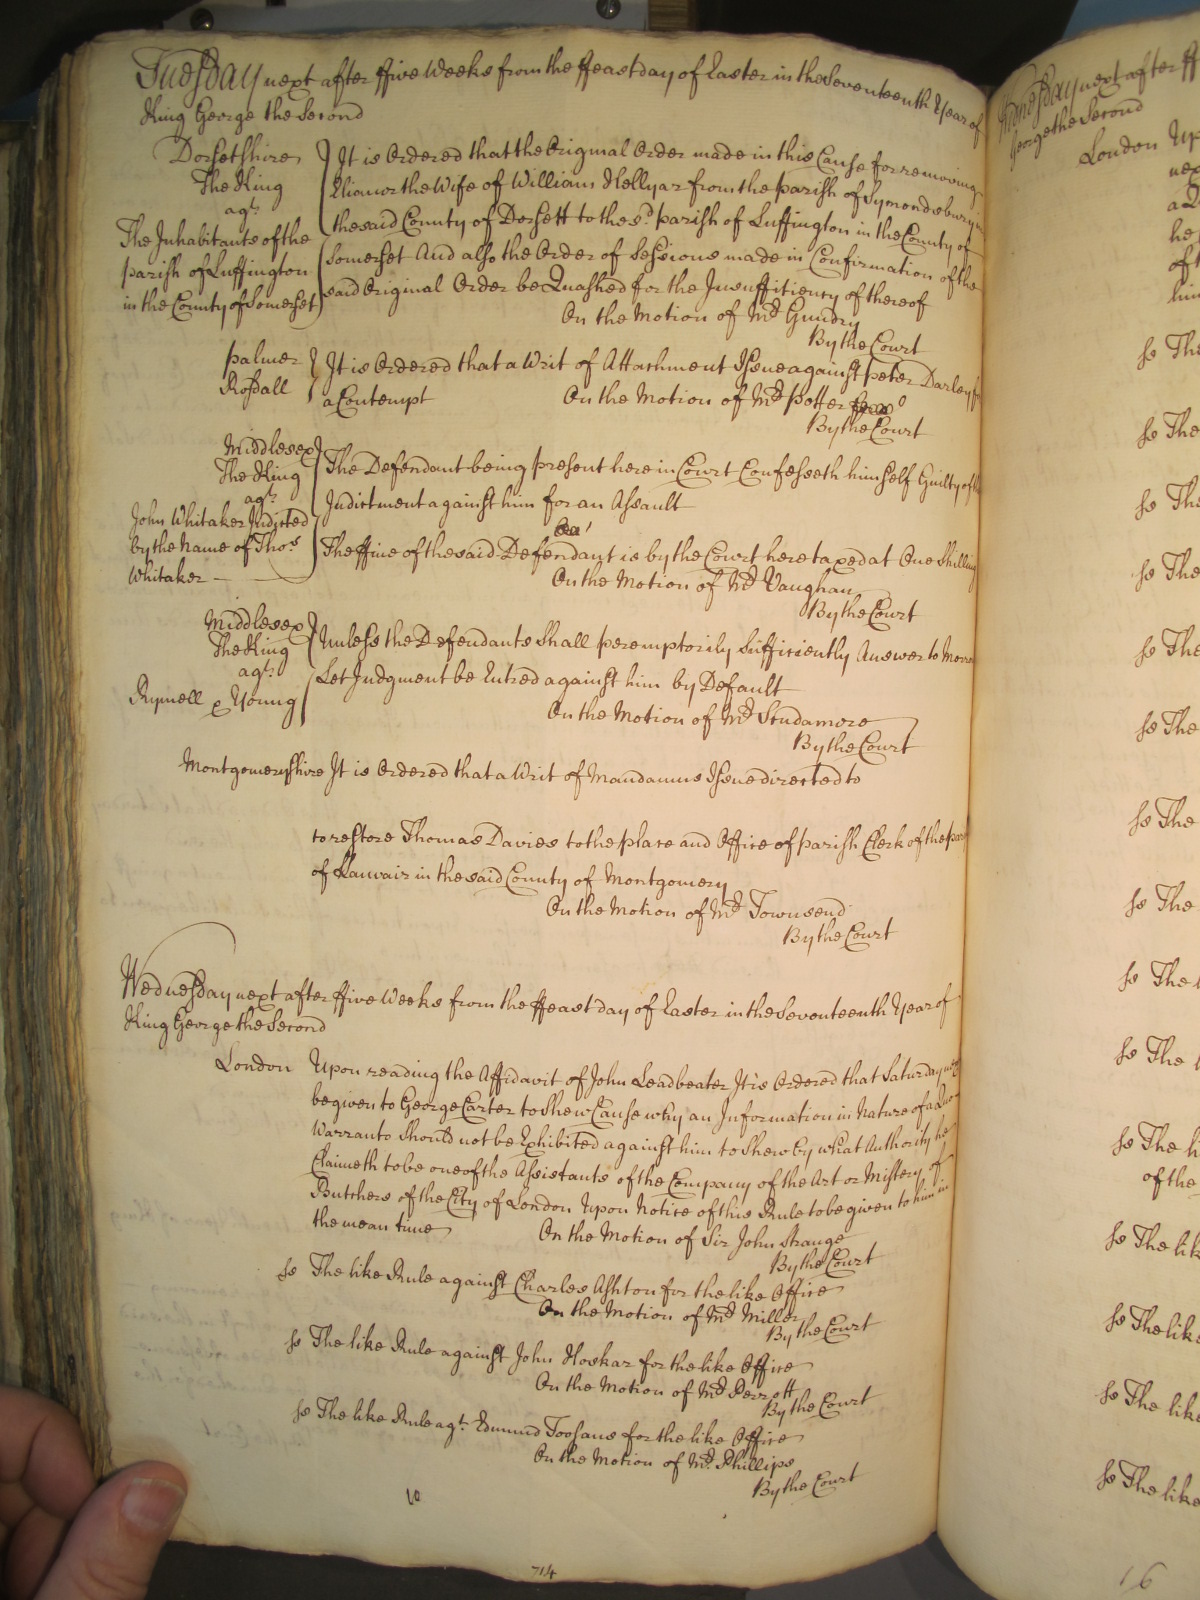 Tuesday next after ffive Weeks from the ffeast day of Easter in the Seventeenth Year of
King George the Second
Dorsetshire
The King
agt.
The Inhabitants of the
parish of Luffington
in the County of Somerset
It is Ordered that the Original Order made in this Cause for removing
Elianor the Wife of William Hellyar from the parish of Symondsbury in
the said County of Dorsett to the sd. parish of Luffington in the County of
Somerset And also the Order of Sessions made in Confirmation of the
said Original Order be Quashed for the Insufficiency of thereof
On the Motion of Mr Gundry
By the Court
palmer
Rossall
It is Ordered that a Writ of Attachment Issue against peter Darley for
a Contempt
On the Motion of Mr potter
By the Court
Middlesex
The King
agt.
John Whitaker Indicted
by the Name of Thos.
Whitaker
The Defendant being present here in Court Confesseth himself Guilty of the
Indictment against him for an Assault
The ffine of the said Defendant is by the Court here taxed at One Shilling
On the Motion of Mr Vaughan
By the Court
Middlesex
The King
agt.
Rymell & Young
Unless the Defendants Shall peremptorily Sufficiently Answer to Morrow
Let Judgment be Entred against him by Default
On the Motion of Mr Scudamore
By the Court
Montgomeryshire It is Ordered that a Writ of Mandamus Issue directed to
to restore Thomas Davies to the place and Office of parish Clerk of the
of Llanvair in the said County of Montgomery
On the Motion of Mr Townsend
By the Court
Wednesday next after ffive Weeks from the ffeast day of Easter in the Seventeenth Year of
King George the Second
London Upon reading the Affidavit of John Leadbeater It is Ordered that Saturday next
be given to George Carter to Shew Cause why an Information in Nature of a Quo
Warranto Should not be Exhibited against him to Shew by what Authority he
Claimeth to be one of the Assistants of the Company of the Art or Mistery of
Butchers of the City of London Upon Notice of this Rule to be given to him in
the mean time
On the Motion of Sir John Strange
By the Court
so The like Rule against Charles Ashton for the like Office
On the Motion of Mr Miller
By the Court
so The like Rule against John Hoskar for the like Office
On the Motion of Mr Perrott
By the Court
so The like Rule agt. Edmund Toosans for the like Office
On the Motion of Mr. Phillips
By the Court
10
714
Wednesday next after
George the Second
London
so The
so The
so The
so The
so The
so The
so The
so The
so The
so The
so The
of the
so The lik
so The like
so The like
so The like
16